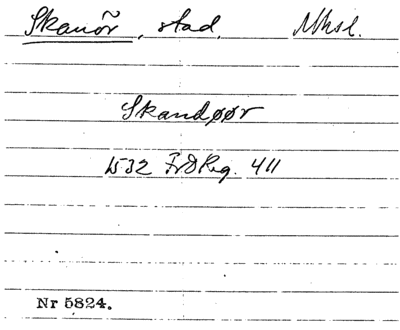 Skanör, stad, Mhsl.
Skandøør
1532 FrDReg. 411
Nr 5824.